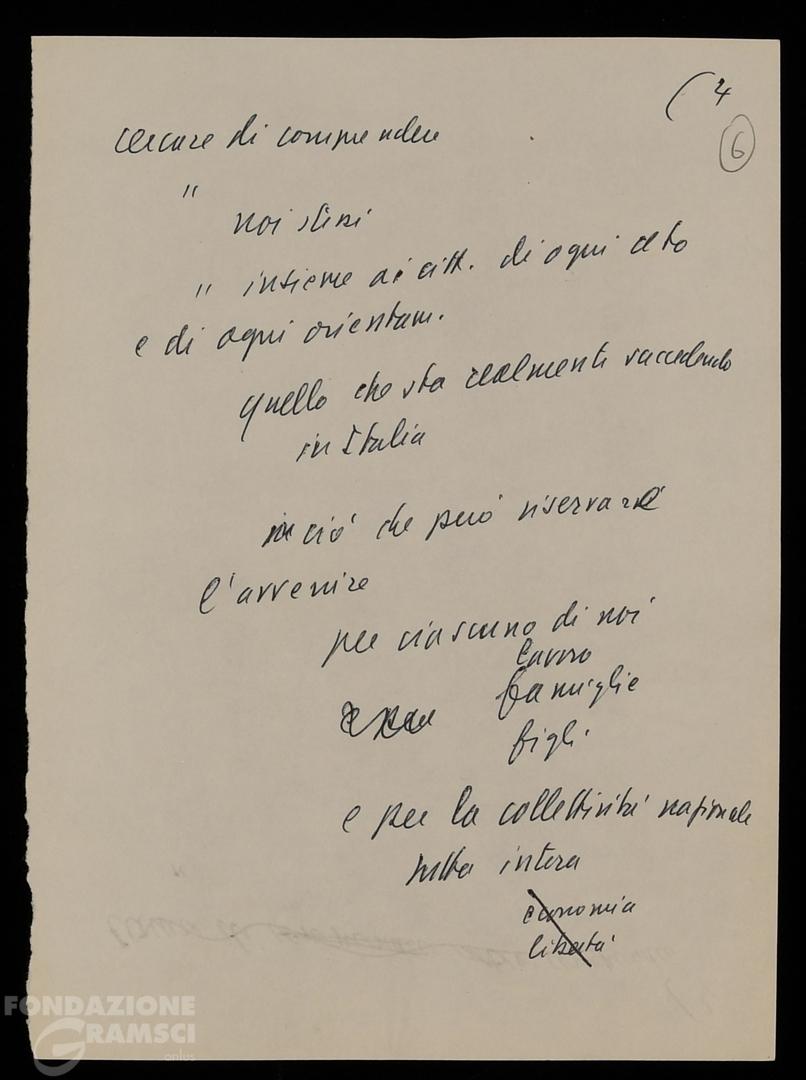 ( 4
6
cercare di comprendere
"
noi stessi
" insieme ai citt. di ogni ceto
e di ogni orientam.
quello che sta realmente succedendo
in Italia
in ciò che può riservare
l'avvenire
per ciascuno di noi
lavoro
famiglie
e per
figli
e per la collettività nazionale
tutta intera
economia
libertà
FONDAZIONE
GRAMSCI
onlus